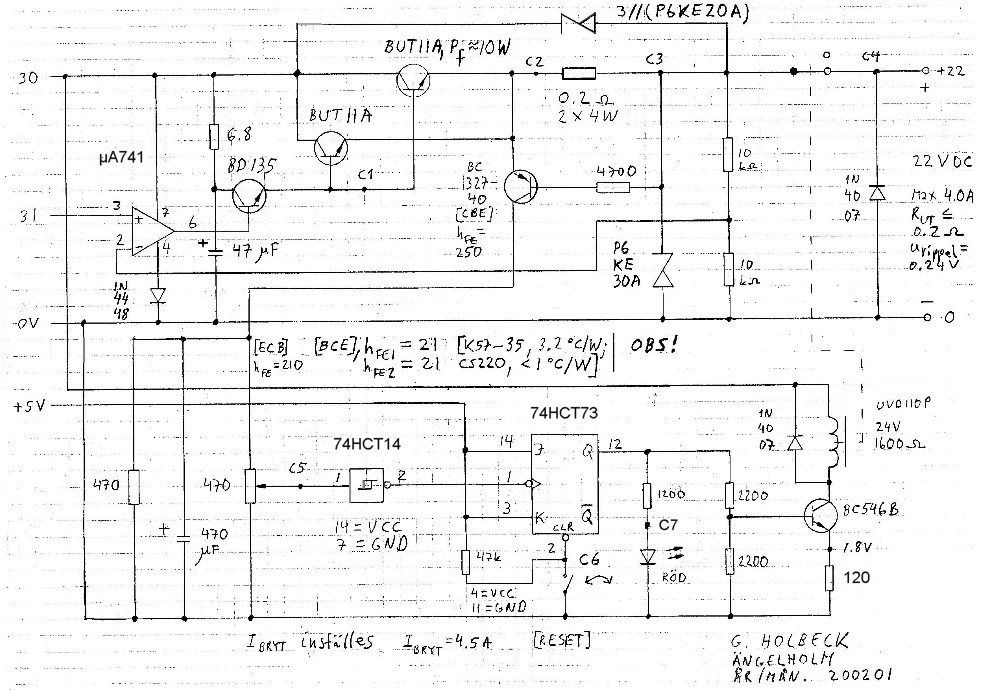 3//(P6KE20A)
BUT11A, Pf ≈10W
30
C2
C3
C4
+22
+
0.2 Ω
2 x 4W
BUT11A
6.8
µA741
BD135
C1
BC
327-
40
[CBE]
hFE =
250
4700
10
kΩ
1N
40
07
22 VDC
Max 4.0A
RUT ≤
0.2 Ω
Urippel =
0.24V
31
3
7
+
6
2
-
4
+
47 µF
1N
44
48
P6
KE
30A
10
kΩ
-0V
-
0
[ECB]
hFE=210
[BCE], hFE1 = 21 [K57-35, 3.2 °C/W;
hFE2 = 21 CS220, <1 °C/W]
OBS!
+5V
74HCT14
74HCT73
1N
40
07
UVD110P
24V
1600 Ω
14
J
Q
12
470
470
C5
1
2
1
3
K
Q
CLR
2
1200
2200
BC546B
+
470
µF
14=VCC
7=GND
47k
C6
C7
RÖD
2200
1.8V
120
4=VCC
11=GND
IBRYT inställes IBRYT=4.5A [RESET]
G. HOLBECK
ÄNGELHOLM
ÅR/MÅN. 200201